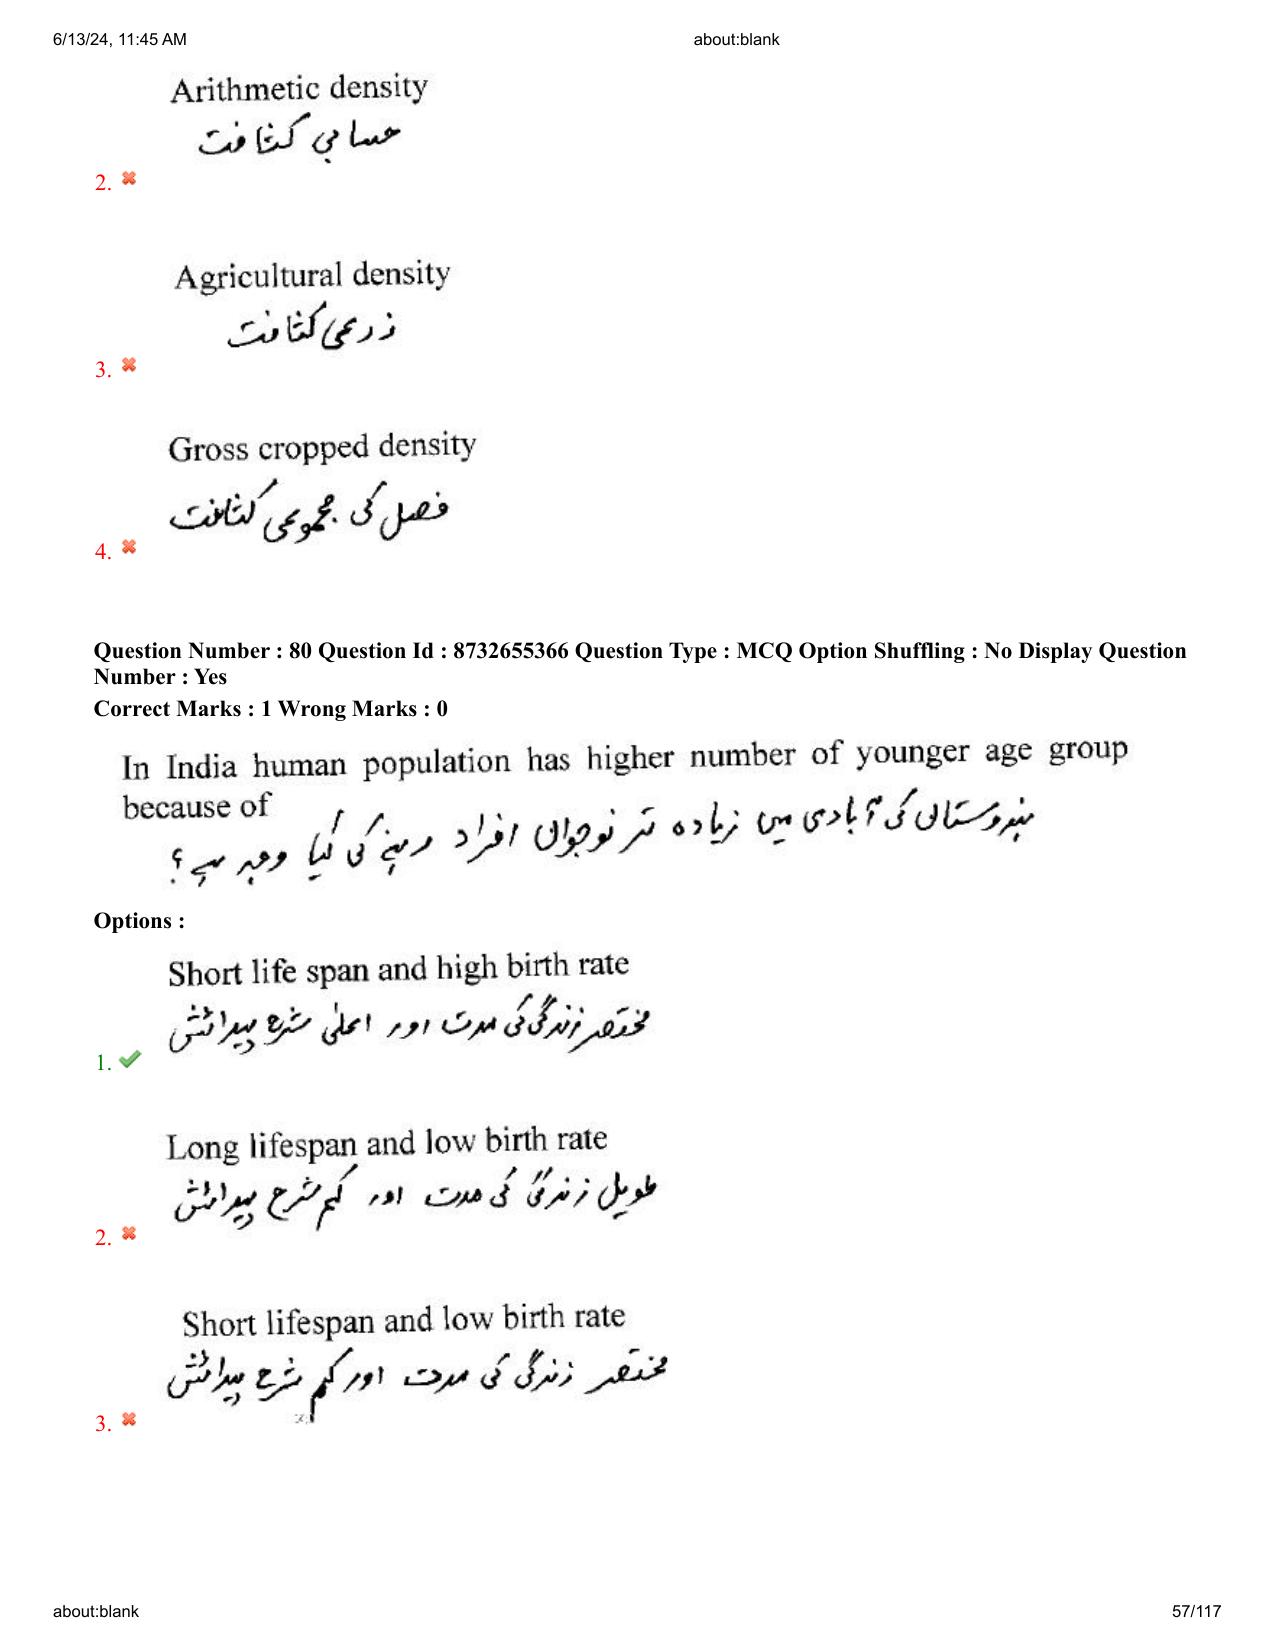 6/13/24, 11:45 AM about:blank
Arithmetic density
حسابی کثافت
2.
Agricultural density
زرعی کثافت
3.
Gross cropped density
فصل کی مجموعی کثافت
4.
Question Number : 80 Question Id : 8732655366 Question Type : MCQ Option Shuffling : No Display Question
Number : Yes
Correct Marks : 1 Wrong Marks : 0
In India human population has higher number of younger age group
because of
ہندوستان کی آبادی میں زیادہ تر نوجوان افراد رہنے کی کیا وجہ ہے؟
Options :
Short life span and high birth rate
مختصر زندگی کی مدت اور اعلیٰ شرح پیدائش
1.
Long lifespan and low birth rate
طویل زندگی کی مدت اور کم شرح پیدائش
2.
Short lifespan and low birth rate
مختصر زندگی کی مدت اور کم شرح پیدائش
3.
about:blank 57/117